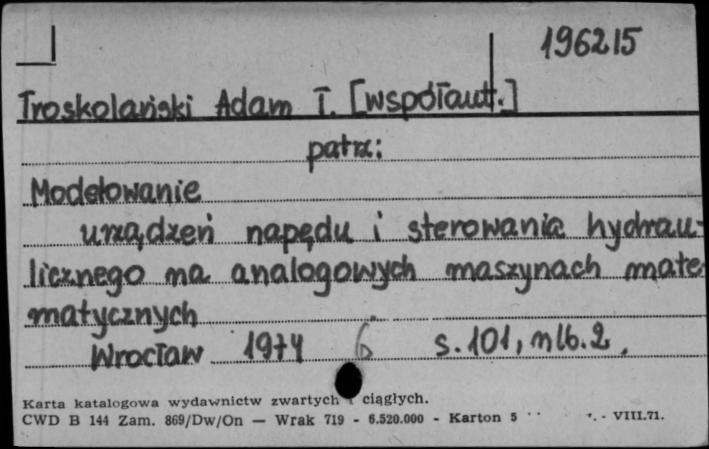 196215
Troskolański Adam T. [współaut.]
patrz:
Modelowanie
urządzeń napędu i sterowania hydrau-
licznego na analogowych maszynach mate-
matycznych
Wrocław 1974 s. 101, nlb. 2,
Karta katalogowa wydawnictw zwartych i ciągłych.
CWD B 144 Zam. 869/Dw/On — Wrak 719 - 6.520.000 - Karton 5 - VIII.71.